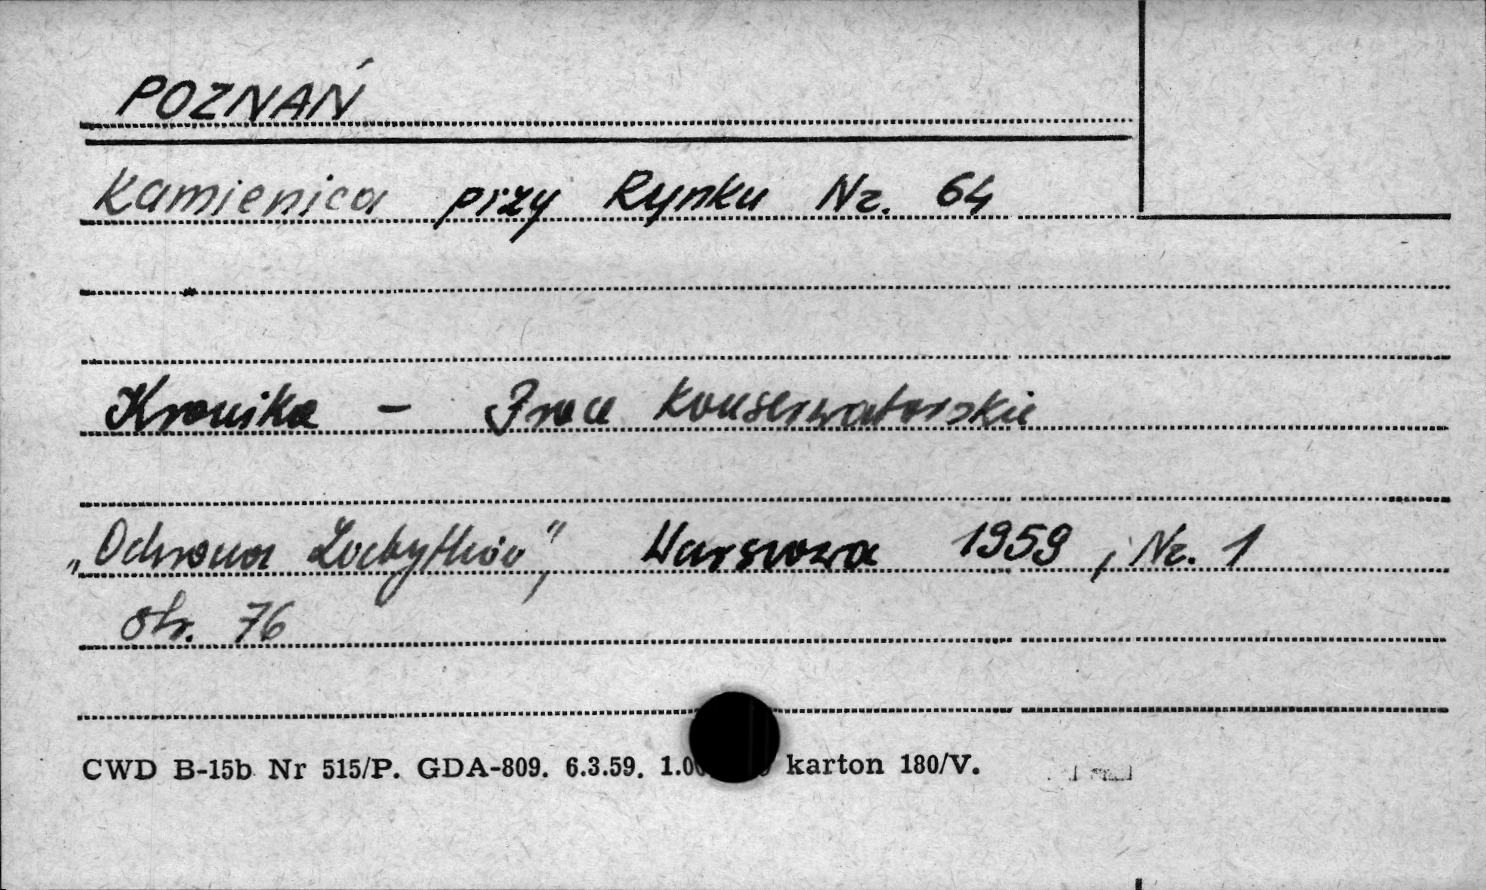 POZNAŃ
Kamienica przy Rynku Nr. 64
Kronika - Prace Konserwatorskie
„Ochrona Zabytków”, Warszawa 1959, Nr. 1
str. 76
CWD B-15b Nr 515/P. GDA-809. 6.3.59. karton 180/V.